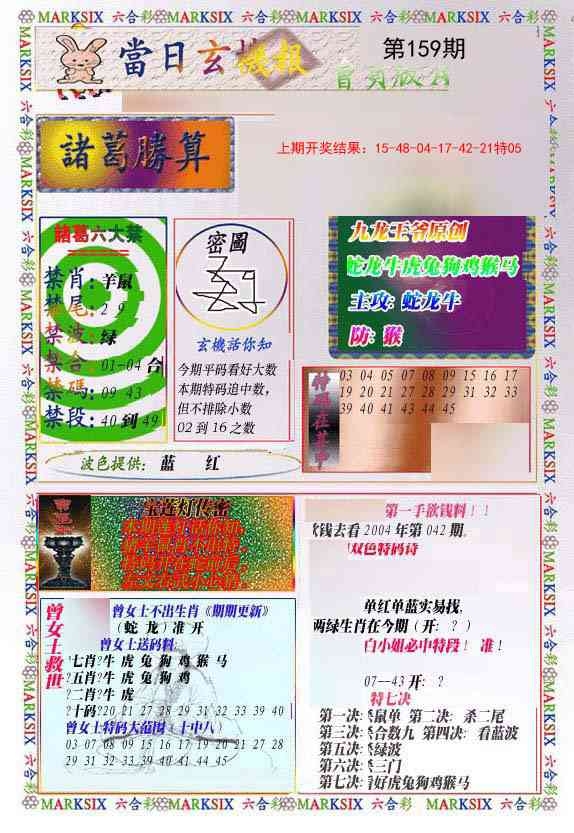 MARKSIX 六合彩 MARKSIX 六合彩 MARKSIX 六合彩 MARKSIX 六合彩
當日玄機報
第159期
諸葛勝算
上期开奖结果：15-48-04-17-42-21特05
諸葛六大禁
禁肖：羊鼠
禁尾：2 9
禁波：绿
禁合：01-04 合
禁碼：09 43
禁段：40 到 49
密圖
玄機話你知
今期平码看好大数
本期特码追中数，
但不排除小数
02 到 16 之数
九龙王爷原创
蛇龙牛虎兔狗鸡猴马
主攻: 蛇龙牛
防: 猴
03 04 05 07 08 09 15 16 17
19 20 21 27 28 29 31 32 33
39 40 41 43 44 45
波色提供: 蓝 红
宝莲灯传密
曾女士救世
曾女士不出生肖《期期更新》
（蛇 龙）准 开
曾女士送码料:
七肖?牛 虎 兔 狗 鸡 猴 马
?五肖?牛 虎 兔 狗 鸡
?二肖?牛 虎
?十码?20 21 27 28 29 31 32 33 39 40
曾女士特码大范围（十中八）
03 07 08 09 15 16 17 19 20 21 27 28
29 31 32 33 39 40 41 44 45
第一手欲钱料！！
欲钱去看 2004 年第 042 期。
双色特码诗
单红单蓝实易找，
两绿生肖在今期（开: ？）
白小姐必中特段！ 准！
07--43 开: ？
特七决
第一决:杀鼠单 第二决: 杀二尾
第三决:杀合数九 第四决: 看蓝波
第五决:杀绿波
第六决:杀三门
第七决:看好虎兔狗鸡猴马
MARKSIX 六合彩 MARKSIX 六合彩 MARKSIX 六合彩 MARKSIX 六合彩